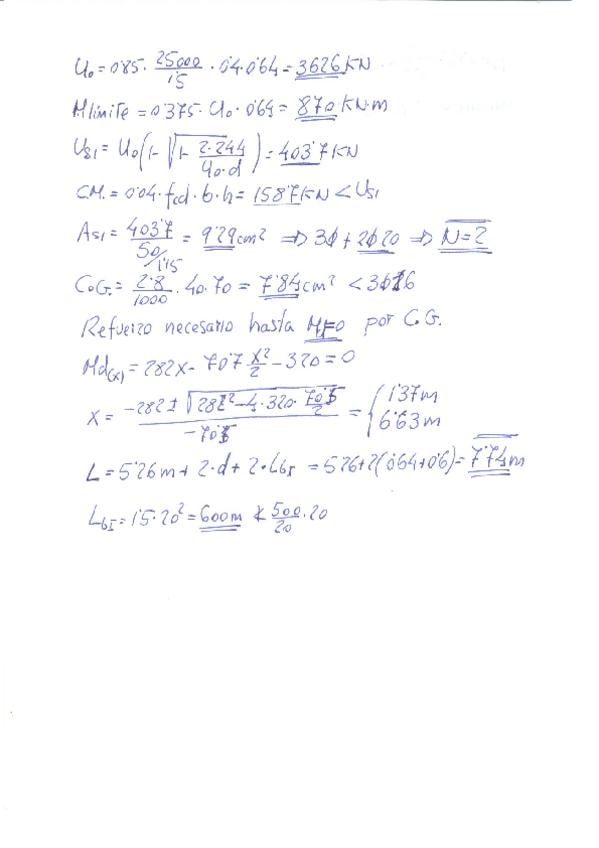 U₀ = 0'85 · 25000/1'5 · 0'4 · 0'64 = 3626 KN
Mlimite = 0'375 · U₀ · 0'64 = 870 KN·m
Us1 = U₀(1-√(1- 2·244/U₀·d)) = 403'7 KN
C.M. = 0'04 · fcd · b · h = 158'7 KN < Us1
As1 = 403'7/(50/1'15) = 9'29 cm² ⇒ 3ϕ + 2ϕ20 ⇒ N=2
C.G. = 2'8/1000 · 40 · 70 = 7'84 cm² < 3ϕ16
Refuerzo necesario hasta M=0 por C.G.
Md(x) = 282x - 70'7 x²/2 - 320 = 0
x = (-282 ± √(282² - 4·320· 70'5/2))/-70'5 = { 1'37m 6'63m
L = 5'26m + 2·d + 2·LbI = 5'26 + 2(0'64 + 0'6) = 7'74m
LbI = 1'5 · 20² = 600m ≮ 500/20 · 20